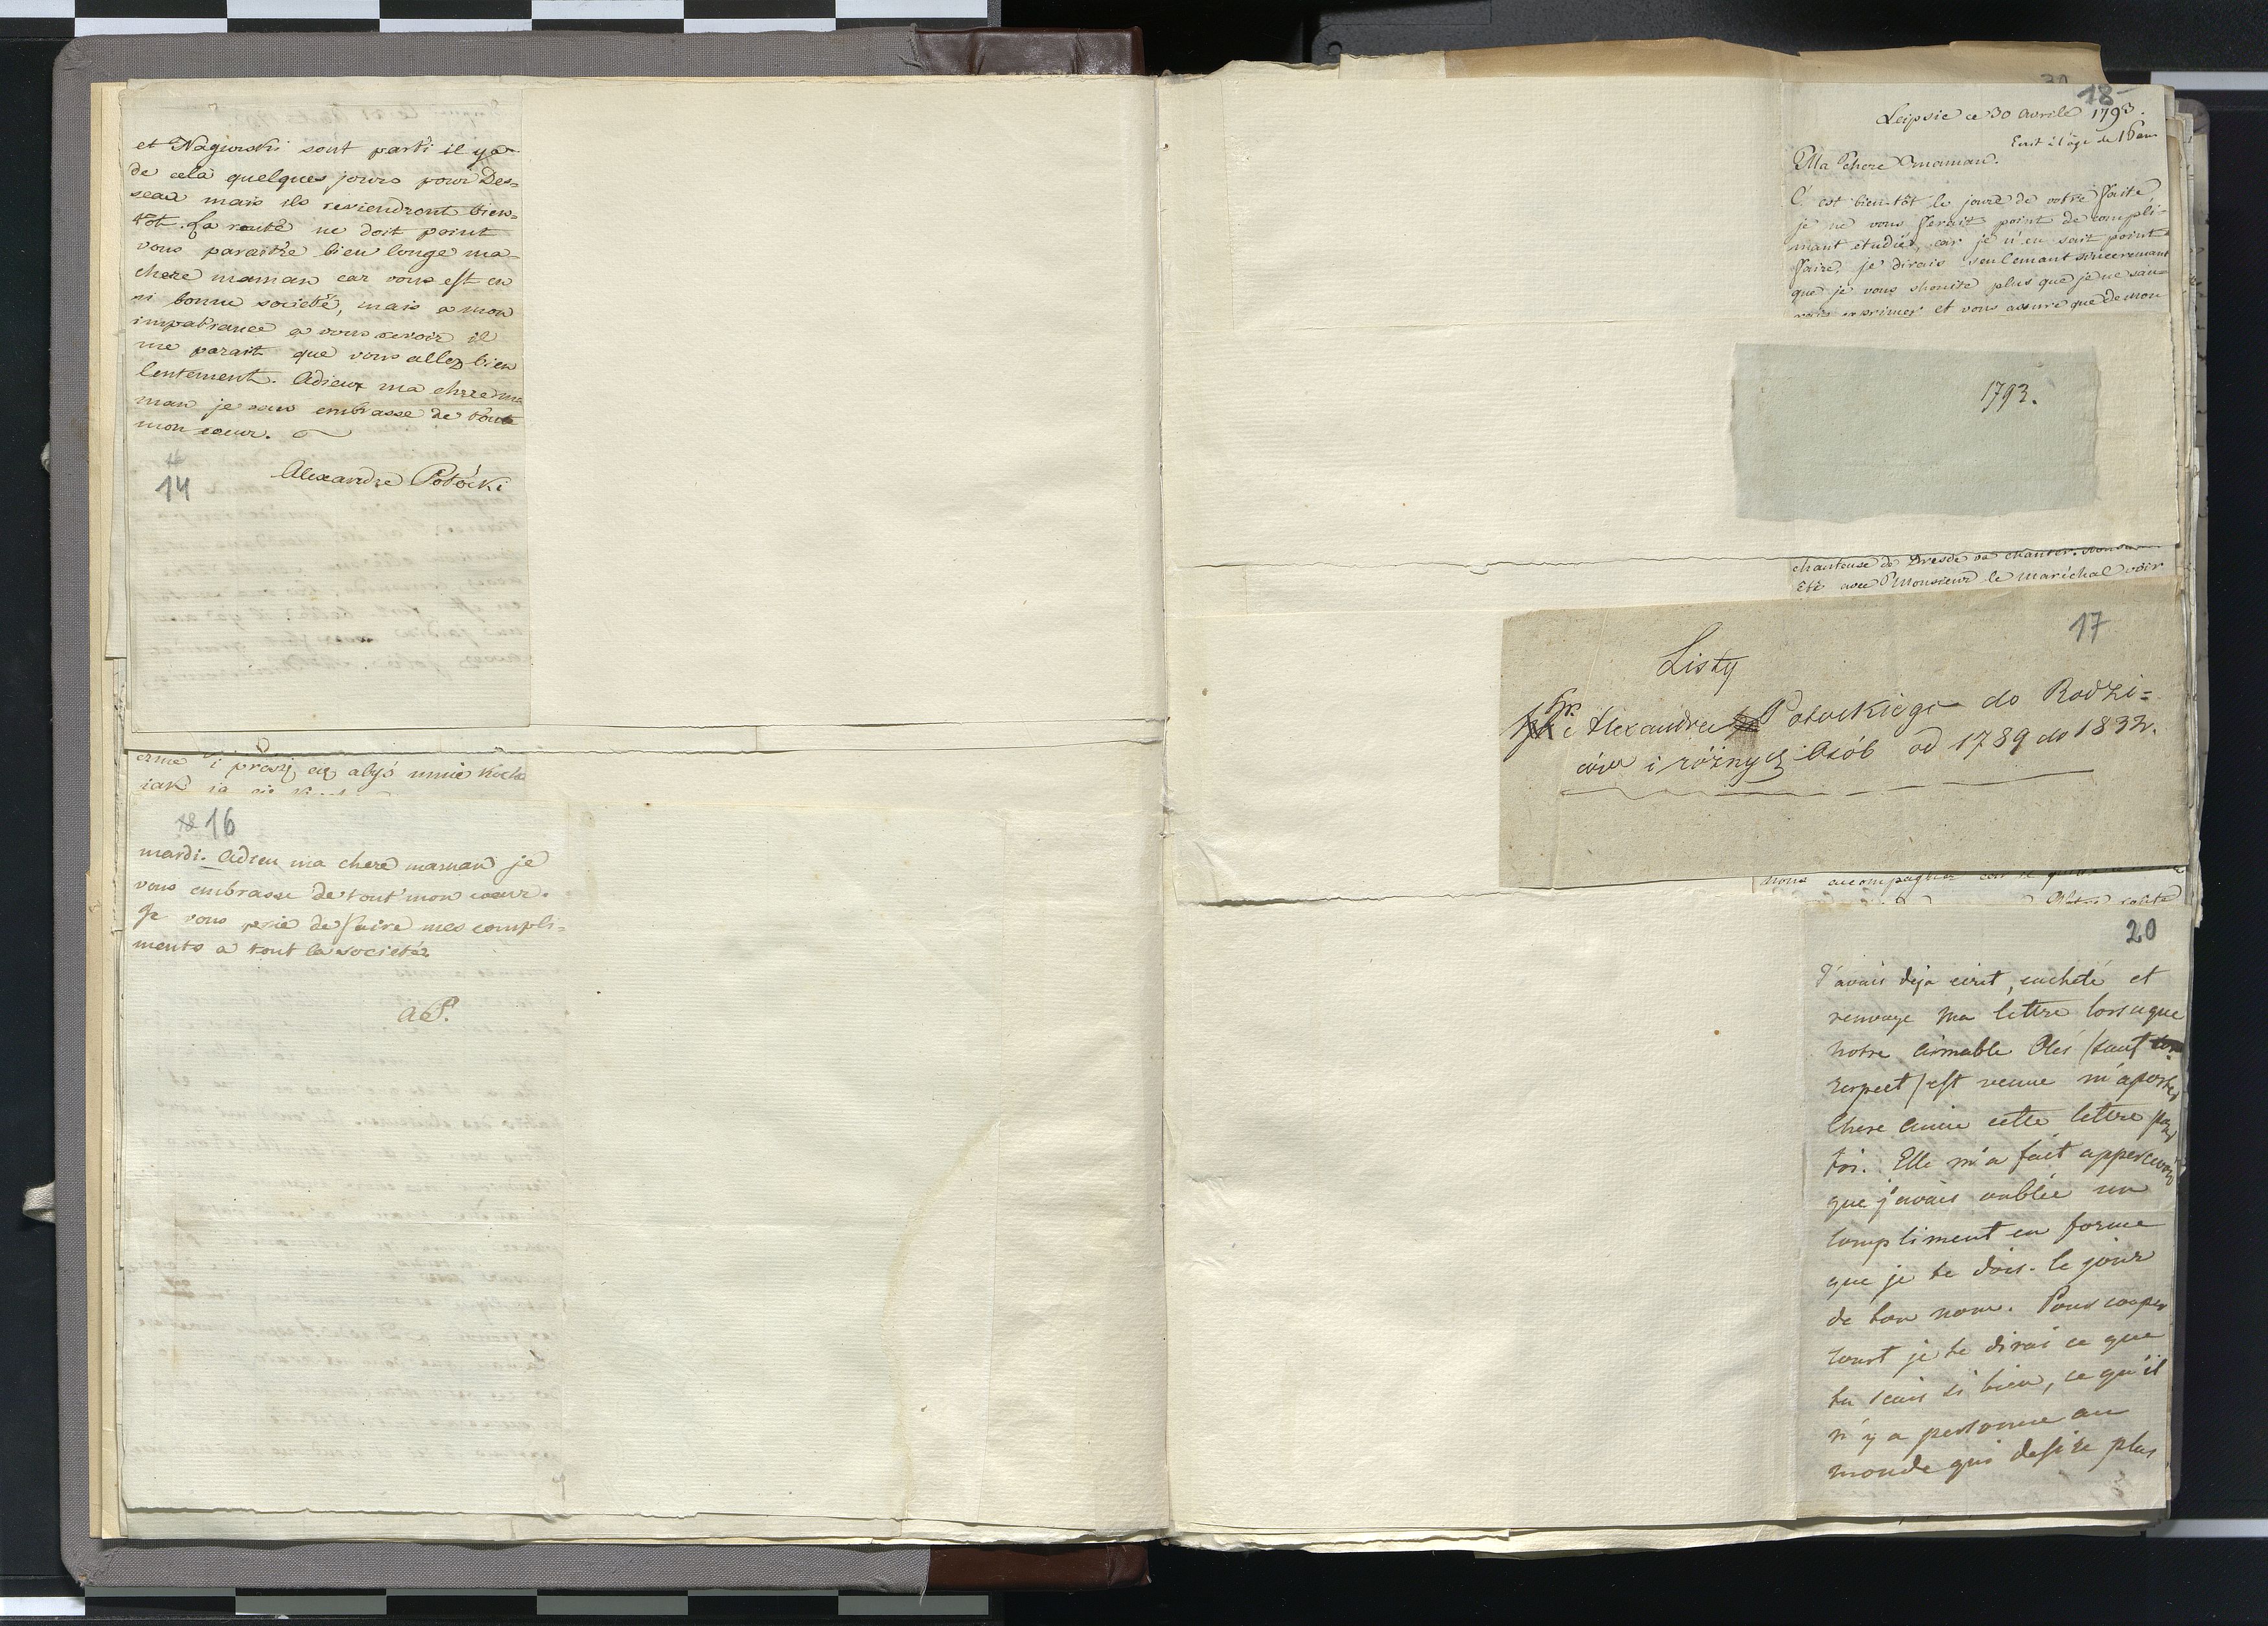 et Nagurski sont parti il ya
de cela quelques jours pour Des=
seau mais ils reviendront bien=
tôt. La route ne doit point
vous paraître bien longe ma
chere maman car vous est en
si bonne societé, mais a mon
impatiance a vous revoir il
me parait que vous allez bien
lentement. Adieux ma chere ma
man je vous embrasse de tout
mon coeur.
Alexandre Potocki
14
erme i proszę cię abyś mnie kocha
iak ia cię
16
mardi. Adieu ma chere maman je
vous embrasse de tout mon coeur.
Je vous prie de faire mes compli=
ments a tout la societé.
AP.
18
Leipsic ce 30 Avrile 1793.
Ecrit à l'âge de 16 ans
Ma chere maman.
C'est bien-tôt le jour de votre faite
je ne vous ferait point de compli-
mant etudiés, car je n'en sait point
faire, je dirais seulemant sinceremant
que je vous shouite plus que je ne sau=
rais exprimer et vous assure que de mon
1793.
chanteuse de Dresde va chanter.
Eté avec Monsieur le maréchal voir
17
Listy
Hr. Alexandra Potockiego do Rodzi=
ców i różnych Osób od 1789 do 1832.
nous accompagner car
20
J'avais deja ecrit, cacheté et
renvoye ma lettre lorsque
notre aimable Olés /sauf
respect/ est venue m'aporter
Chere amie cette lettre pour
toi. Elle m'a fait appercevoir
que j'avais oublié un
compliment en forme
que je te dois le jour
de ton nom. Pour couper
court je te dirai ce que
tu scais si bien, ce qu'il
n'y a personne au
monde qui desire plus